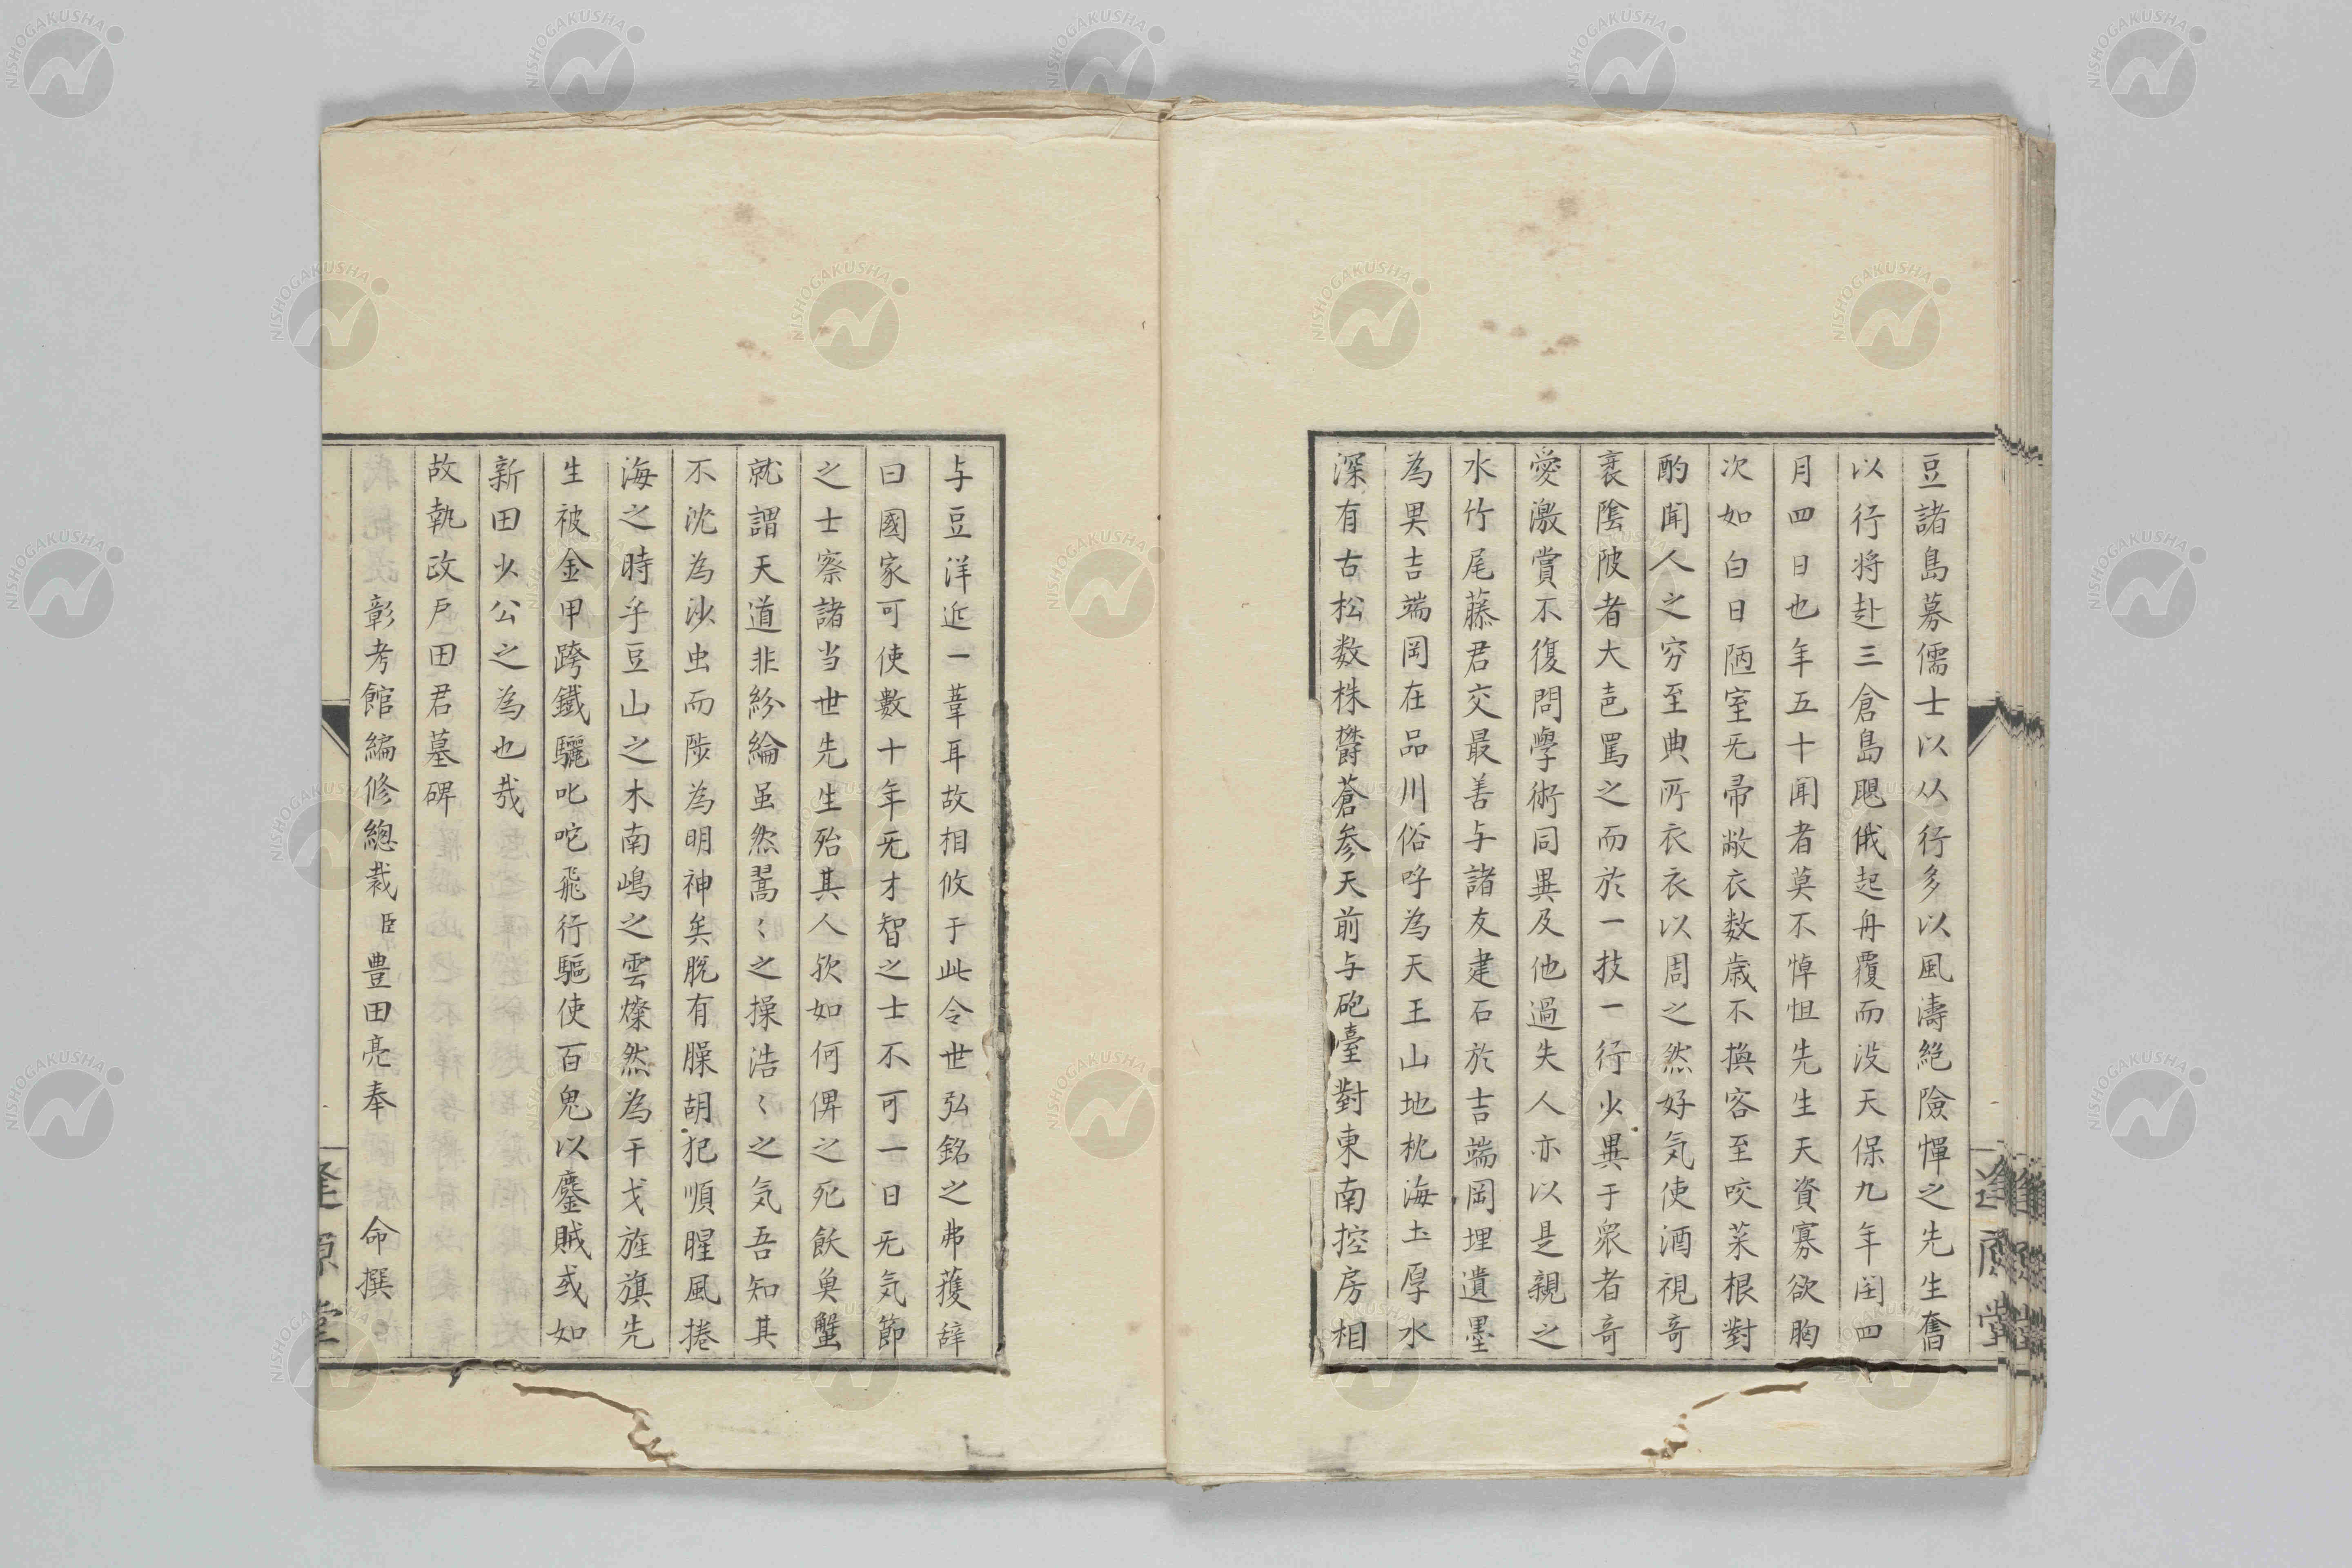 豆諸島募儒士以从行多以風濤絶險憚之先生奮
以行将赴三倉島颶俄起舟覆而没天保九年閏四
月四日也年五十聞者莫不悼怛先生天資寡欲胸
次如白日陋室无帚敝衣数歳不換客至咬菜根對
酌聞人之窮至典所衣衣以周之然好気使酒視奇
衺陰陂者大唘罵之而於一技一行少異于衆者奇
愛激賞不復問學術同異及他過失人亦以是親之
水竹尾藤君交最善与諸友建石於吉端岡埋遺墨
為男吉端岡在品川俗呼為天王山地枕海土厚水
深有古松数株欝蒼参天前与砲臺對東南控房相
与豆洋近一葦耳故相攸于此令世弘銘之弗獲辞
曰國家可使數十年无才智之士不可一日无気節
之士察諸当世先生殆其人欤如何俾之死飫奠蟹
就謂天道非紛綸虽然翯〻之操浩〻之気吾知其
不沈為沙虫而陟為明神矣脱有臊胡犯順腥風捲
海之時乎豆山之木南嶋之雲燦然為干戈旌旗先
生被金甲跨鐵驪叱咤飛行驅使百鬼以鏖賊或如
新田少公之為也哉
故執政戸田君墓碑
彰考館編修總裁臣豊田亮奉 命撰
逢原堂